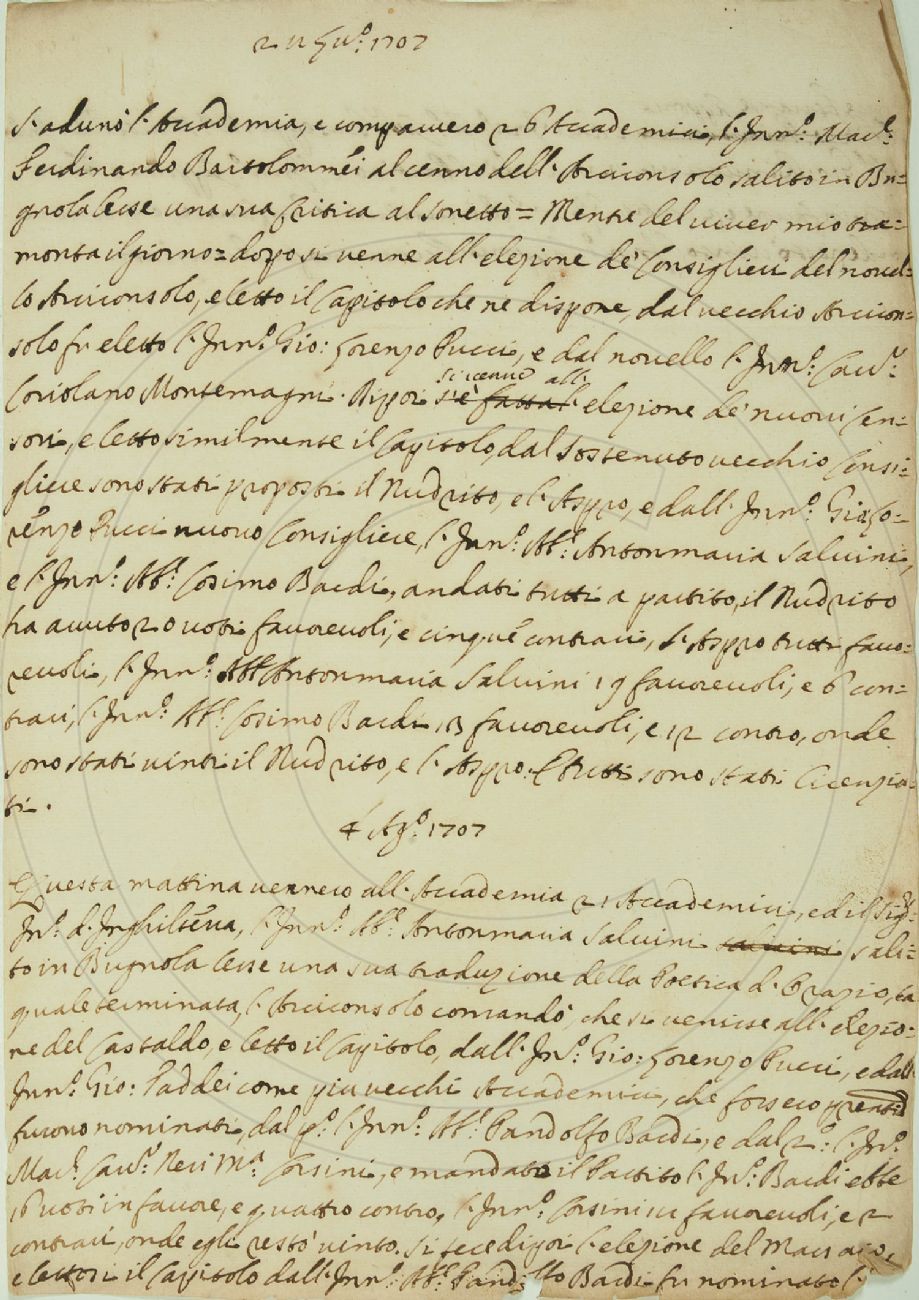 21 Lug.º 1707
S'adunò l'Accademia, e comparvero 26 Accademici, l'Inn.º Mar.
Ferdinando Bartolommei al cenno dell'Arciconsolo salito in Bu=
gnola lesse una sua Critica al Sonetto = Mentre del viver mio tra=
monta il giorno = dopo si venne all'elezione de' Consiglieri del novel=
lo Arciconsolo, e letto il Capitolo che ne dispone, dal vecchio Arcicon=
solo fu eletto l'Inn.º Gio: Lorenzo Pucci, e dal novello l'Inn.º Cav.
Coriolano Montemagni. Dipoi s'è fatta l' si venne all' elezione de' nuovi Cen=
sori, e letto similmente il Capitolo, dal Sostenuto vecchio Consi=
gliere sono stati proposti il Nudrito, e l'Aspro, e dall'Inn.º Gio: Lo=
renzo Pucci nuovo Consigliere, l'Inn.º Ab.º Antonmaria Salvini,
e l'Inn.º Ab.º Cosimo Bardi, andati tutti a partito, il Nudrito
ha avuto 20 voti favorevoli, e cinque contrari, l'Aspro tutti favo=
revoli, l'Inn.º Ab.º Antonmaria Salvini 19 favorevoli, e 6 con=
trari, l'Inn.º Ab.º Cosimo Bardi 13 favorevoli, e 12 contro, onde
sono stati vinti il Nudrito, e l'Aspro. E tutti sono stati licenzia=
ti.
4 Ag.º 1707
Questa mattina vennero all'Accademia 21 Accademici, ed il Sig.
In.º d'Inghilterra, l'Inn.º Ab.º Antonmaria Salvini Salvini sali=
to in Bugnola lesse una sua traduzione della Poetica d'Orazio, la
quale terminata, l'Arciconsolo comandò, che si venisse all'elezio=
ne del Castaldo, e letto il Capitolo, dall'In.º Gio: Lorenzo Pucci, e dall'
Inn.º Gio: Taddei come più vecchi Accademici, che fossero presenti
furono nominati, dal p.º l'Inn.º Ab.º Pandolfo Bardi, e dal 2.º l'In.º
Mar. Cav. Neri M.ª Corsini, e mandato il Partito l'In.º Bardi ebbe
16 voti in favore, e quattro contro, l'Inn.º Corsini favorevoli, e 2
contrari, onde egli restò vinto. Si fece dipoi l'elezione del Massaio,
e lettosi il Capitolo dall'Inn.º Ab.º Pandolfo Bardi fu nominato l'